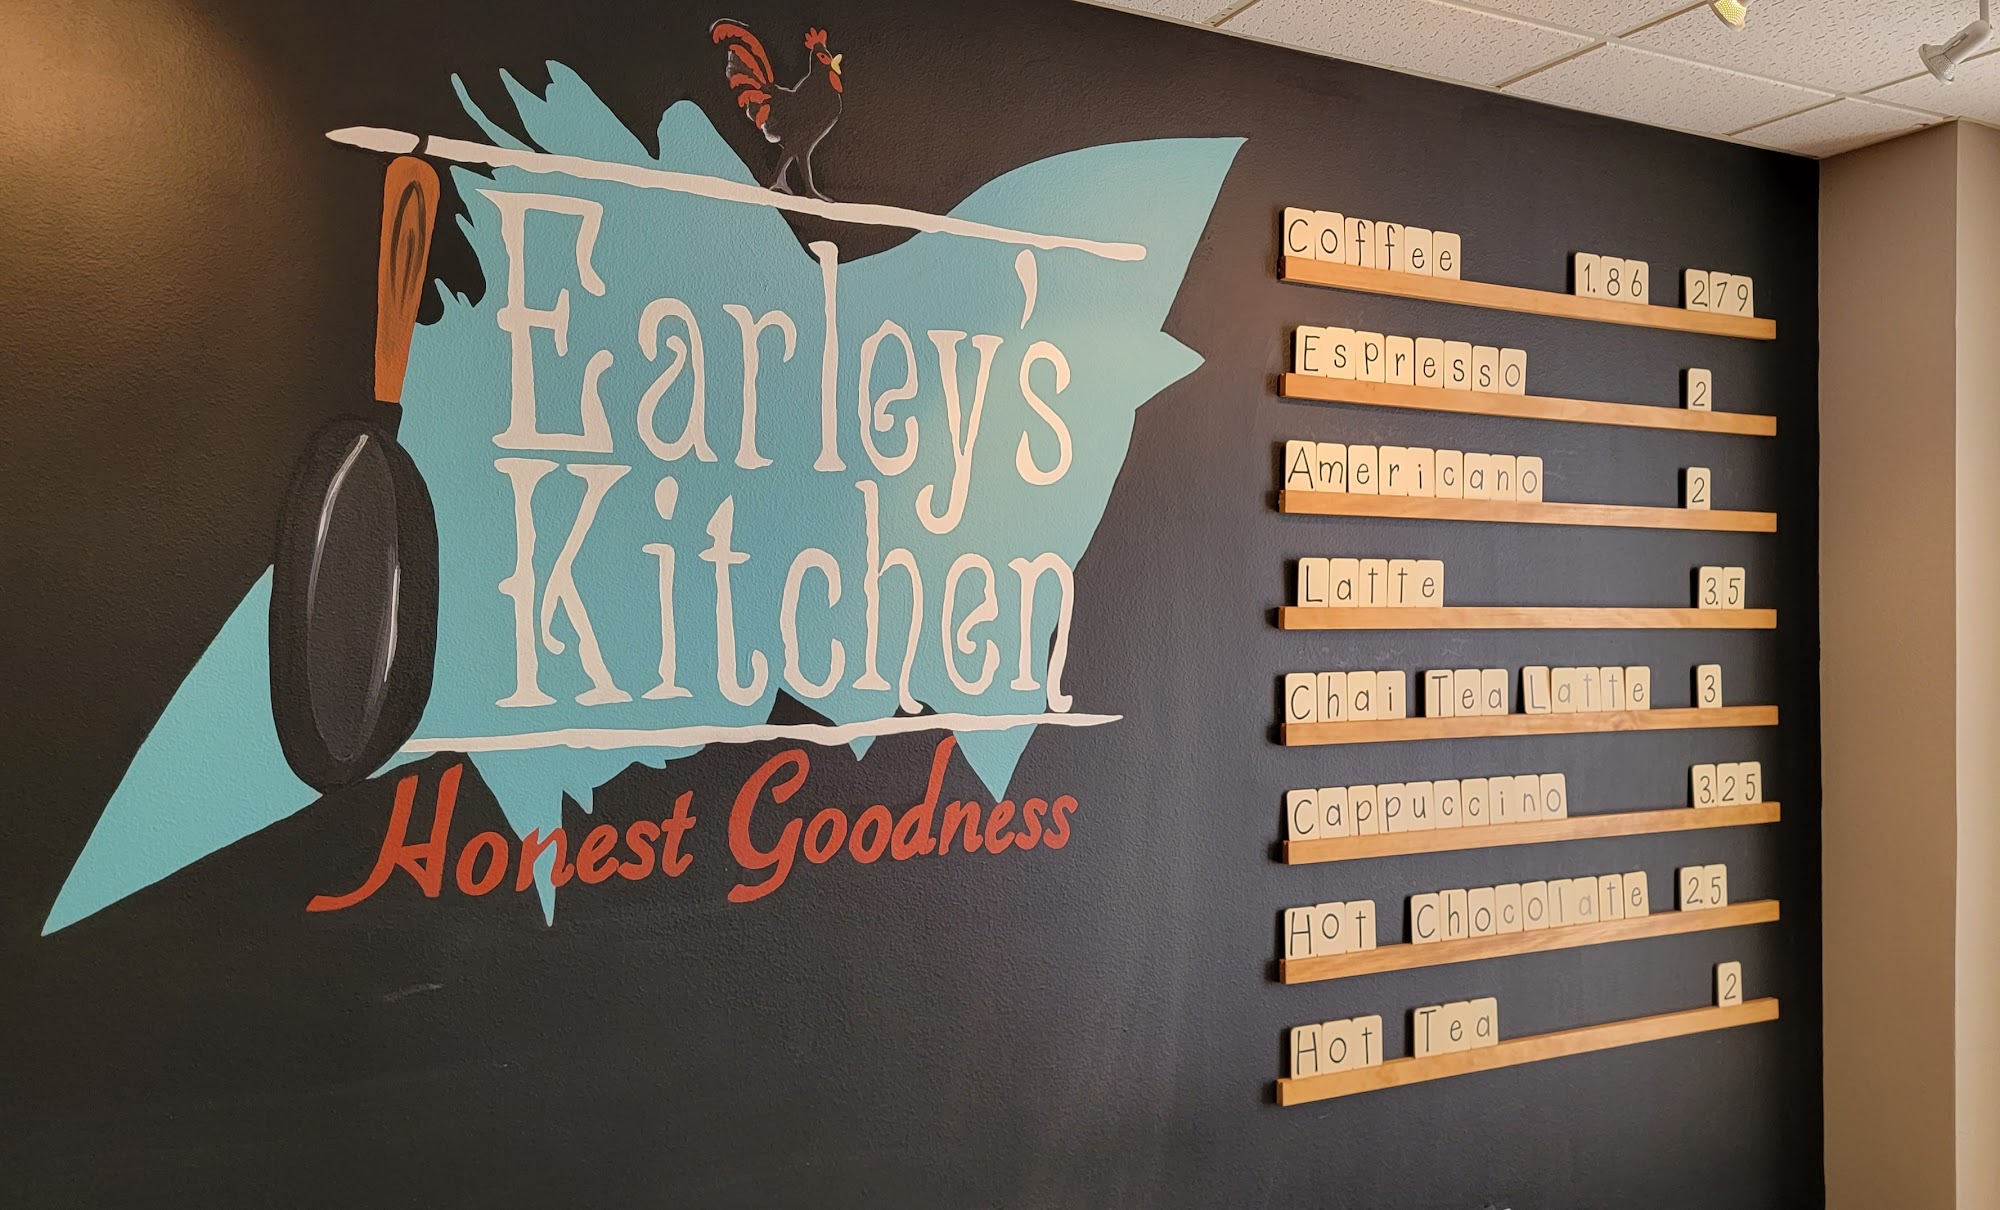 Earley's
Kitchen
Honest Goodness
Coffee 1.86 2.79
Espresso 2
Americano 2
Latte 3.5
Chai Tea Latte 3
Cappuccino 3.25
Hot Chocolate 2.5
Hot Tea 2